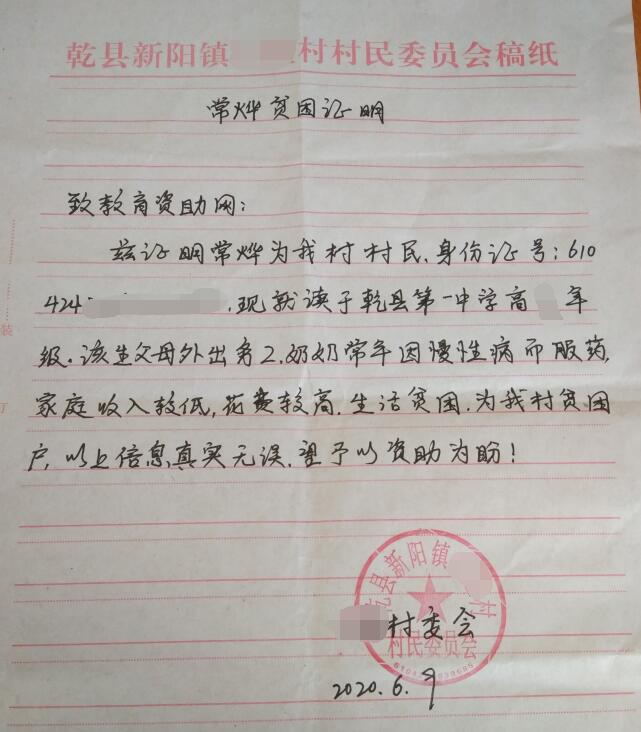 乾县新阳镇 村村民委员会稿纸
常烨贫困证明
致教育资助网：
兹证明常烨为我村村民,身份证号：610
424 ,现就读于乾县第一中学高 年
级.该生父母外出务工.奶奶常年因慢性病而服药,
家庭收入较低,花费较高.生活贫困.为我村贫困
户,以上信息真实无误.望予以资助为盼！
乾县新阳镇 村
村委会
村民委员会
2020.6.9
装
订